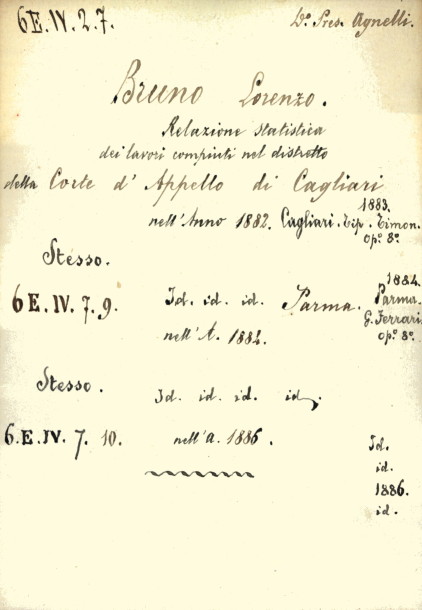 6E.IV.2.7.
Dº. Pres. Agnelli.
Bruno Lorenzo.
Relazione statistica
dei lavori compiuti nel distretto
della Corte d' Appello di Cagliari
nell' Anno 1882. Cagliari. Tip. Timon.
1883.
opº. 8º.
Stesso.
6 E. IV. 7. 9. Id. id. id. Parma.
nell' A. 1884.
1884.
Parma.
G. Ferrari
opº. 8º.
Stesso.
Id. id. id. id.
6. E. IV. 7. 10. nell' a. 1886.
Id.
id.
1886.
id.